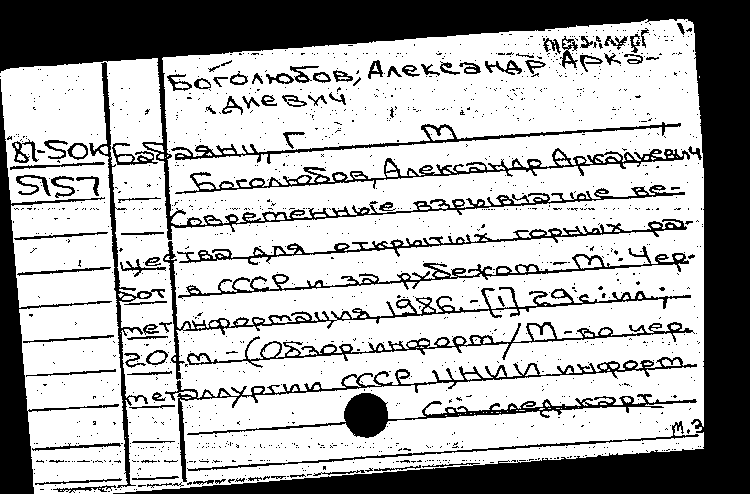 металлург
Боголюбов, Александр Арка-
диевич
87-50К Бабаянц, Г М
5157 Боголюбов, Александр Аркадьевич
Современные взрывчатые ве-
щества для открытых горных ра-
бот в СССР и за рубежом. - М.: Чер-
метинформация, 1986. - [1], 29 с.: ил.;
20 см. - (Обзор. информ / М-во чер.
металлургии СССР, ЦНИИ информ.
См. след. карт.
т. 3